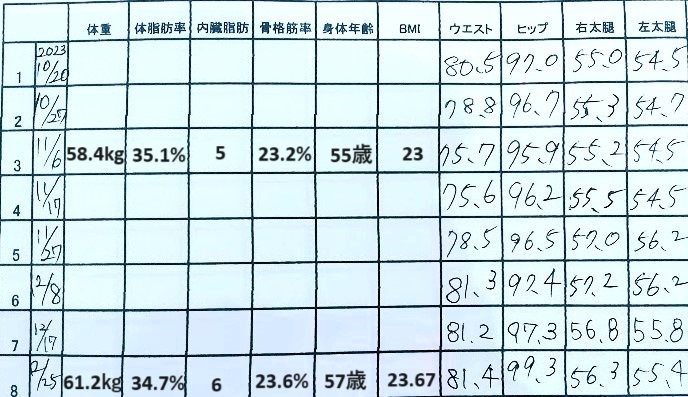 体重 体脂肪率 内臓脂肪 骨格筋率 身体年齢 BMI ウエスト ヒップ 右太腿 左太腿
1 2023 10/20 80.5 97.0 55.0 54.5
2 10/27 78.8 96.7 55.3 54.7
3 11/6 58.4kg 35.1% 5 23.2% 55歳 23 75.7 95.9 55.2 54.5
4 11/17 75.6 96.2 55.5 54.5
5 11/27 78.5 96.5 57.0 56.2
6 12/8 81.3 97.4 57.2 56.2
7 12/17 81.2 97.3 56.8 55.8
8 12/25 61.2kg 34.7% 6 23.6% 57歳 23.67 81.4 99.3 56.3 55.4